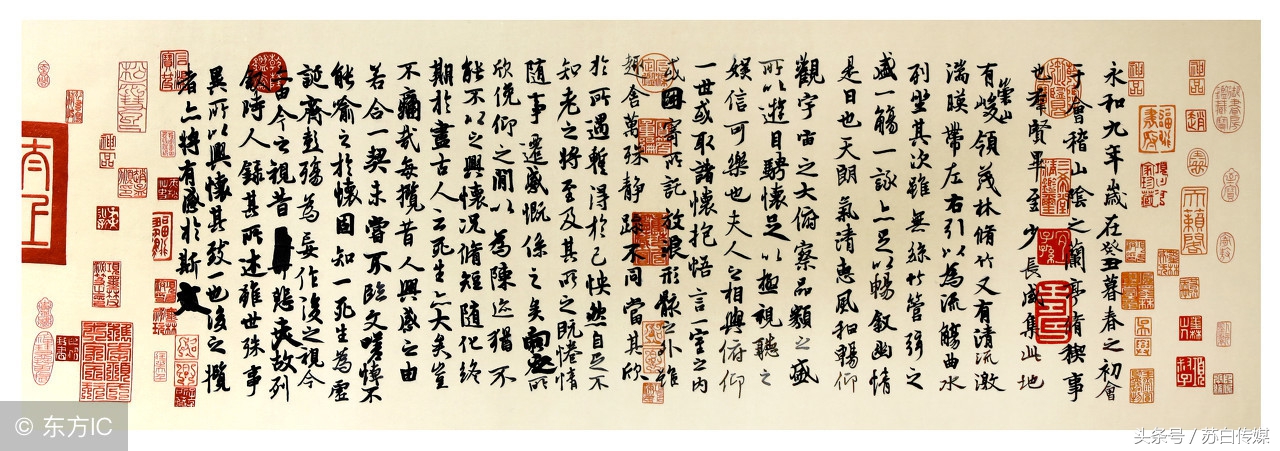 永和九年歲在癸丑暮春之初會
于會稽山陰之蘭亭脩稧事
也羣賢畢至少長咸集此地
有崇山峻領茂林脩竹又有清流激
湍暎帶左右引以為流觴曲水
列坐其次雖無絲竹管弦之
盛一觴一詠亦足以暢敘幽情
是日也天朗氣清惠風和暢仰
觀宇宙之大俯察品類之盛
所以遊目騁懷足以極視聽之
娛信可樂也夫人之相與俯仰
一世或取諸懷抱悟言一室之內
或因寄所託放浪形骸之外雖
趣舍萬殊靜躁不同當其欣
於所遇蹔得於己怏然自足不
知老之將至及其所之既惓情
隨事遷感慨係之矣向之所
欣俛仰之閒以為陳迹猶不
能不以之興懷況脩短隨化終
期於盡古人云死生亦大矣豈
不痛哉每攬昔人興感之由
若合一契未嘗不臨文嗟悼不
能喻之於懷固知一死生為虛
誕齊彭殤為妄作後之視今
亦由今之視昔悲夫故列
敘時人錄其所述雖世殊事
異所以興懷其致一也後之攬
者亦將有感於斯文
© 东方IC
头条号 / 苏白传媒